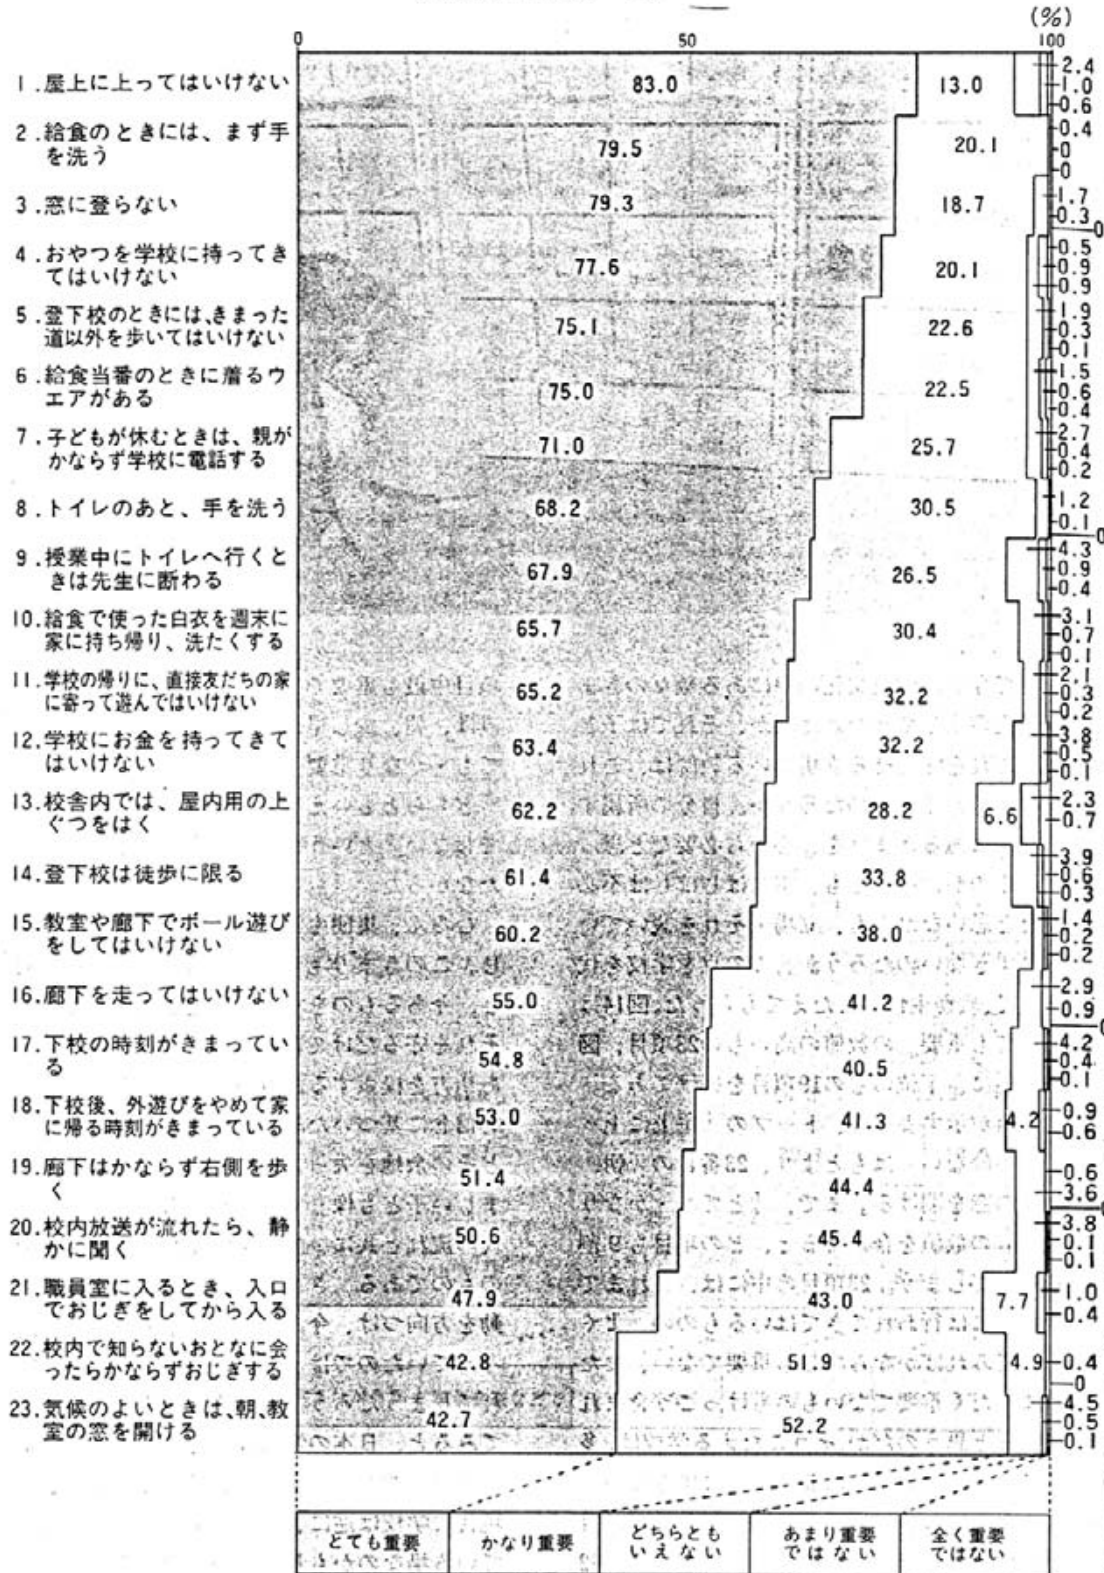 (%)
0 50 100
1.屋上に上ってはいけない 83.0 13.0 2.4 1.0 0.6
2.給食のときには、まず手
を洗う 79.5 20.1 0.4 0 0
3.窓に登らない 79.3 18.7 1.7 0.3 0
4.おやつを学校に持ってき
てはいけない 77.6 20.1 0.5 0.9 0.9
5.登下校のときには、きまった
道以外を歩いてはいけない 75.1 22.6 1.9 0.3 0.1
6.給食当番のときに着るウ
エアがある 75.0 22.5 1.5 0.6 0.4
7.子どもが休むときは、親が
かならず学校に電話する 71.0 25.7 2.7 0.4 0.2
8.トイレのあと、手を洗う 68.2 30.5 1.2 0.1 0
9.授業中にトイレへ行くと
きは先生に断わる 67.9 26.5 4.3 0.9 0.4
10.給食で使った白衣を週末に
家に持ち帰り、洗たくする 65.7 30.4 3.1 0.7 0.1
11.学校の帰りに、直接友だちの家
に寄って遊んではいけない 65.2 32.2 2.1 0.3 0.2
12.学校にお金を持ってきて
はいけない 63.4 32.2 3.8 0.5 0.1
13.校舎内では、屋内用の上
ぐつをはく 62.2 28.2 6.6 2.3 0.7
14.登下校は徒歩に限る 61.4 33.8 3.9 0.6 0.3
15.教室や廊下でボール遊び
をしてはいけない 60.2 38.0 1.4 0.2 0.2
16.廊下を走ってはいけない 55.0 41.2 2.9 0.9 0
17.下校の時刻がきまってい
る 54.8 40.5 4.2 0.4 0.1
18.下校後、外遊びをやめて家
に帰る時刻がきまっている 53.0 41.3 4.2 0.9 0.6
19.廊下はかならず右側を歩
く 51.4 44.4 0.6 3.6 0
20.校内放送が流れたら、静
かに聞く 50.6 45.4 3.8 0.1 0.1
21.職員室に入るとき、入口
でおじぎをしてから入る 47.9 43.0 7.7 1.0 0.4
22.校内で知らないおとなに会
ったらかならずおじぎする 42.8 51.9 4.9 0.4 0
23.気候のよいときは、朝、教
室の窓を開ける 42.7 52.2 4.5 0.5 0.1
とても重要 かなり重要 どちらとも
いえない あまり重要
ではない 全く重要
ではない